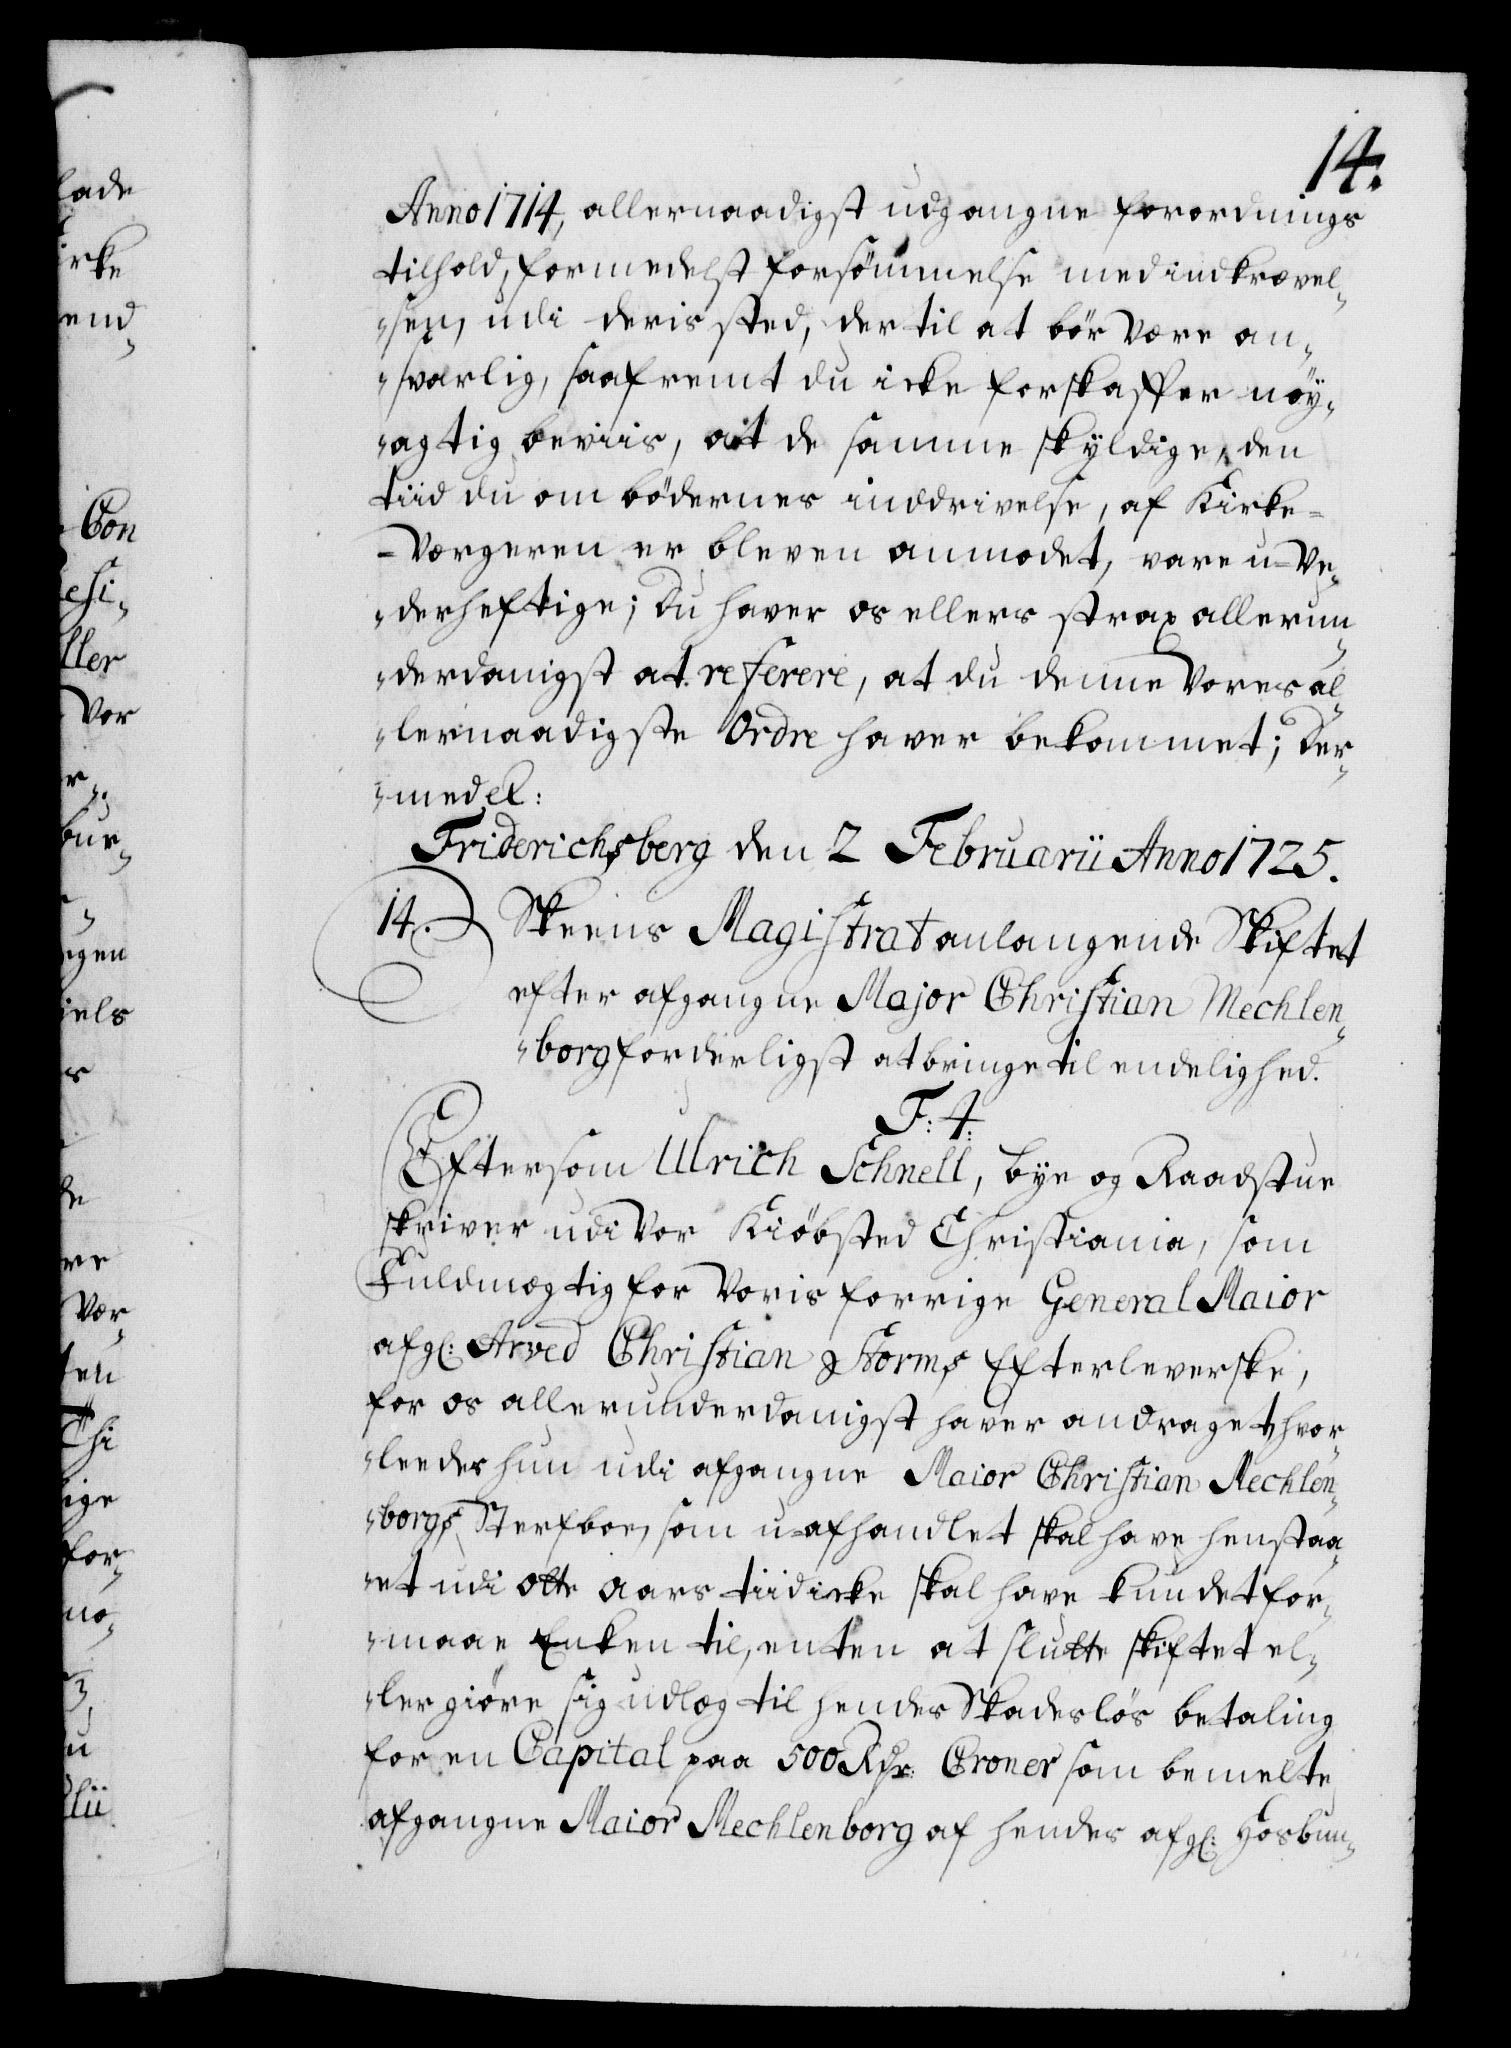 14.
Anno 1714, allernaadigst udgangne forordnings
tilhold, formedelst forsömmelse med indkrævel„
„sen, udi deris sted, dertil at bör være an„
„svarlig, saafremt du icke forskaffer nöy„
„agtig beviis, at de samme skyldige, den
tiid du om bödernes inddrivelse, af Kirke=
=Værgeren er bleven anmodet, vare u-Ve„
„derheftige; Du haver os ellers strax allerun„
„derdanigst at referere, at du denne Vores al„
„lernaadigste Ordre haver bekommet; Der„
„med etc:
Friderichsberg den 2 Februarii Anno 1725.
14. Skeens Magistrat anlangende Skiftet
efter afgangne Major Christian Mechlen„
„borg forderligst at bringe til endelighed.
F: 4:
Eftersom Ulrich Schnell, bye og Raadstue
skriver udi Vor Kiöbsted Christiania, som
Fuldmægtig for Voris forrige General Maior
afg: Arved Christian Storms Efterleverske,
for os allerunderdanigst haver andraget, hvor„
„ledes hun udi afgangne Maior Christian Mechlen„
„borgs Sterfboe, som u-afhandlet skal have henstaa„
„et udi otte aars tiid icke skal have kundet for„
„maae Enken til, enten at slutte skiftet el„
„ler giöre sig udlæg til hendes Skadeslös betaling
for en Capital paa 500 Rdr: Croner som bemelte
afgangne Maior Mechlenborg af hendes afg: Hosbun„
lade
irke
end„
Con
esi„
ller
Vor
r„
bur„
gen
iels
s
de
re
Vær„
ten
Chi
ige
for„
mo„
u
lii